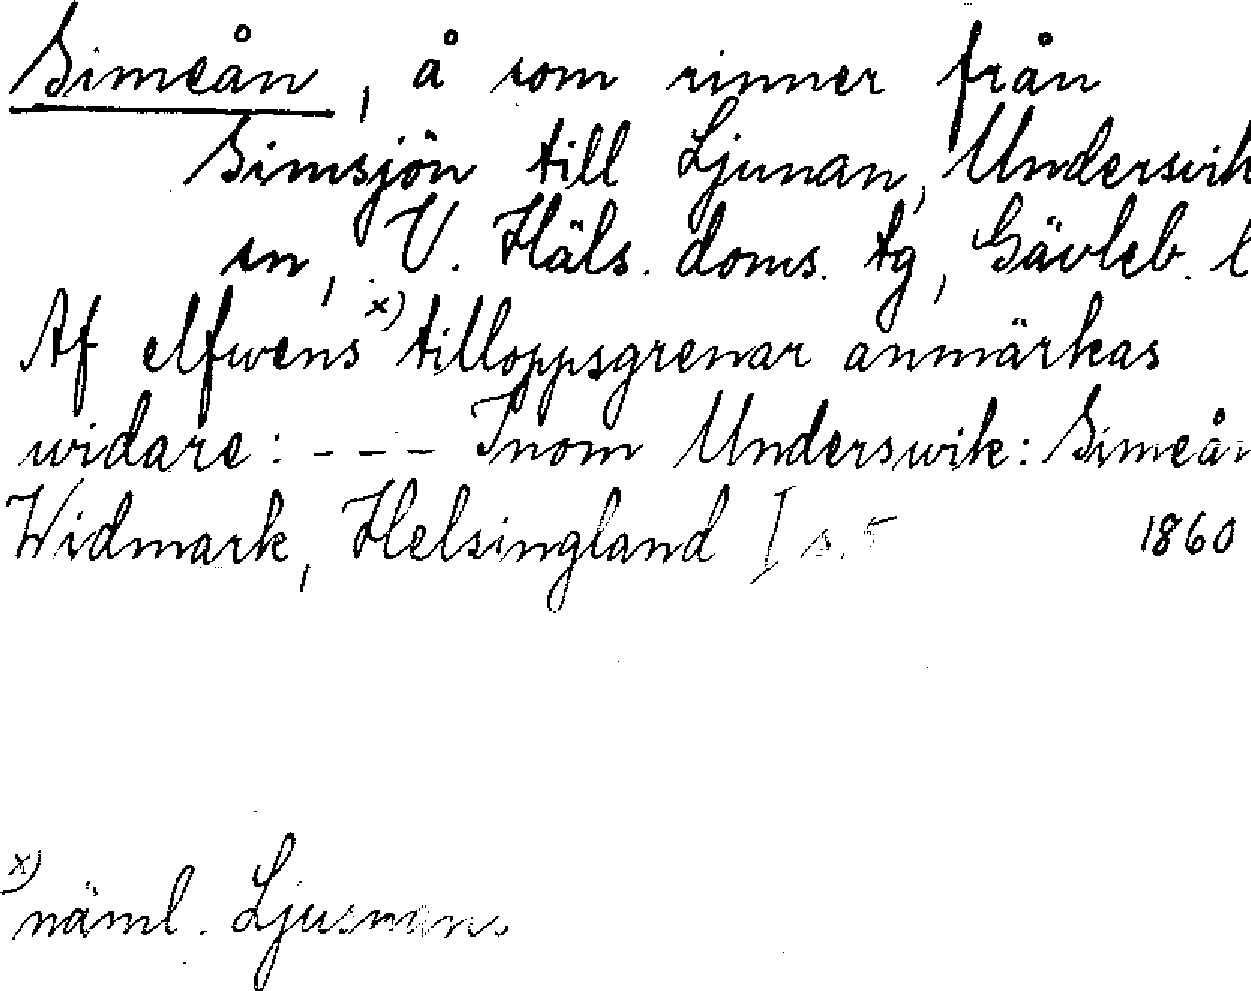 Simeån, å som rinner från
Simsjön till Ljunan, Undersvik
sn, V. Häls. doms. tg, Gävleb. l
Af elfwens x) tilloppsgrenar anmärkas
widare: - - - Inom Underswik: Simeån
Widmark, Helsingland I s. 5 1860
x) näml. Ljusnans